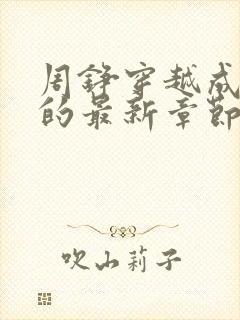 周铮穿越成
的最新章节
吹山莉子